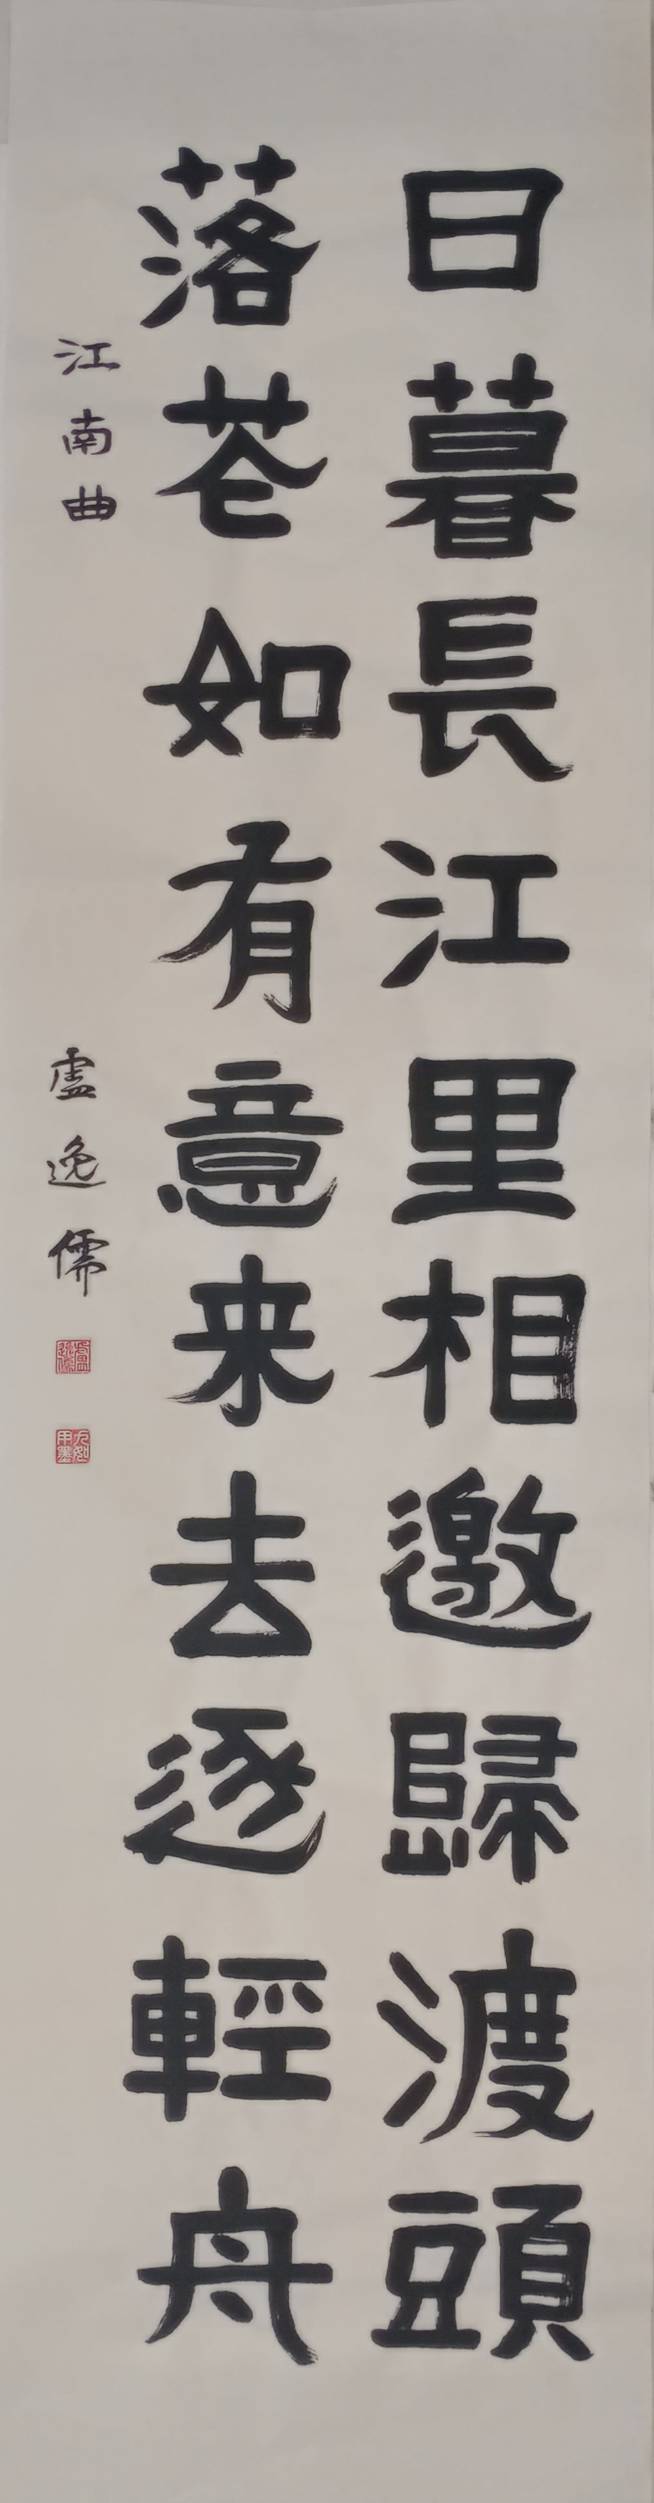 日暮長江里相邀歸渡頭
落花如有意来去逐輕舟
江南曲
盧逸儒